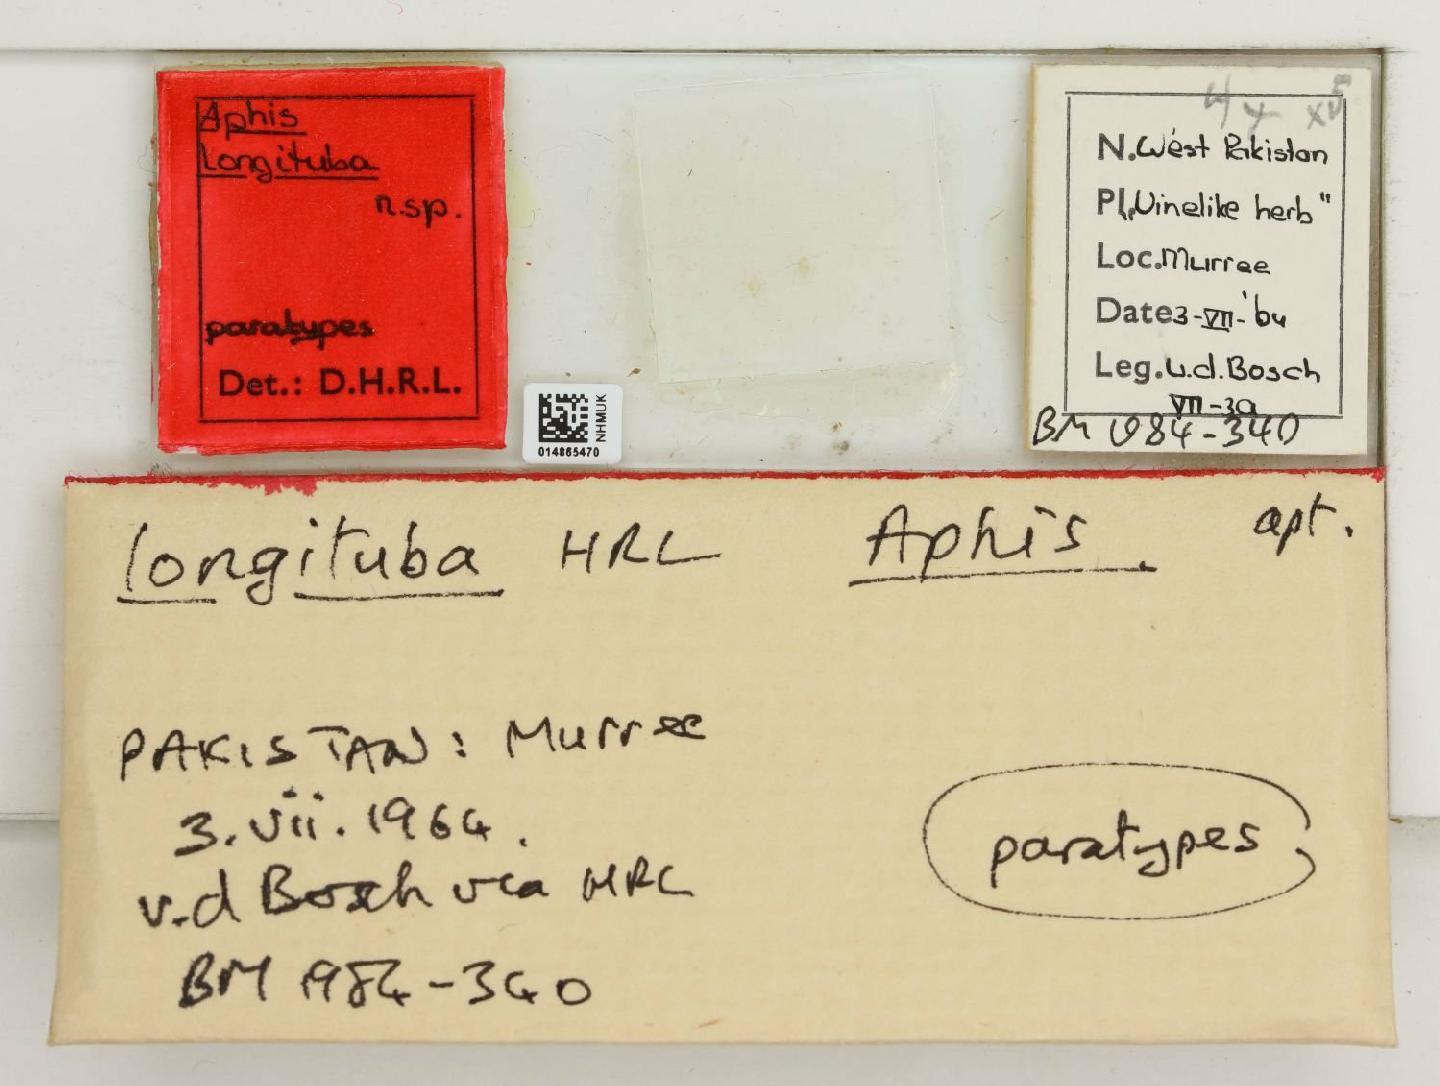 Aphis
Longituba
n.sp.
paratypes
Det.: D.H.R.L.
NHMUK
014865470
x5
N.West Pakistan
Pl. „Vinelike herb"
Loc. Murree
Date 3-VII-'64
Leg. v.d. Bosch
VII-3a
BM 1984-340
longituba HRL Aphis. apt.
PAKISTAN: Murree
3.vii.1964.
v.d Bosch via HRL
BM 1984-340
paratypes